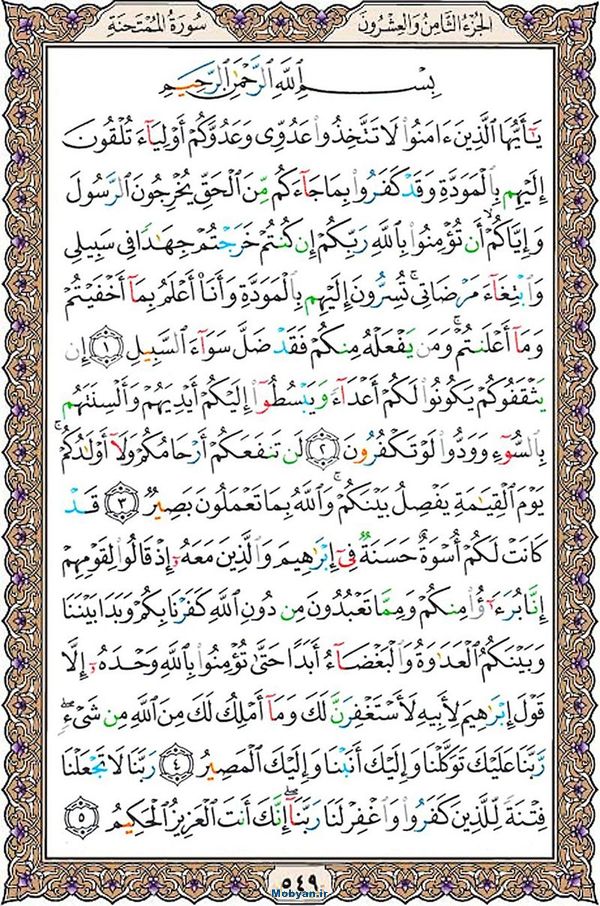 الجزء الثامن والعشرون
سورة الممتحنة
بِسْمِ ٱللَّهِ ٱلرَّحْمَٰنِ ٱلرَّحِيمِ
يَٰٓأَيُّهَا ٱلَّذِينَ ءَامَنُوا۟ لَا تَتَّخِذُوا۟ عَدُوِّى وَعَدُوَّكُمْ أَوْلِيَآءَ تُلْقُونَ
إِلَيْهِم بِٱلْمَوَدَّةِ وَقَدْ كَفَرُوا۟ بِمَا جَآءَكُم مِّنَ ٱلْحَقِّ يُخْرِجُونَ ٱلرَّسُولَ
وَإِيَّاكُمْ ۙ أَن تُؤْمِنُوا۟ بِٱللَّهِ رَبِّكُمْ إِن كُنتُمْ خَرَجْتُمْ جِهَٰدًا فِى سَبِيلِى
وَٱبْتِغَآءَ مَرْضَاتِى ۚ تُسِرُّونَ إِلَيْهِم بِٱلْمَوَدَّةِ وَأَنَا۠ أَعْلَمُ بِمَآ أَخْفَيْتُمْ
وَمَآ أَعْلَنتُمْ ۚ وَمَن يَفْعَلْهُ مِنكُمْ فَقَدْ ضَلَّ سَوَآءَ ٱلسَّبِيلِ ١ إِن
يَثْقَفُوكُمْ يَكُونُوا۟ لَكُمْ أَعْدَآءً وَيَبْسُطُوٓا۟ إِلَيْكُمْ أَيْدِيَهُمْ وَأَلْسِنَتَهُم
بِٱلسُّوٓءِ وَوَدُّوا۟ لَوْ تَكْفُرُونَ ٢ لَن تَنفَعَكُمْ أَرْحَامُكُمْ وَلَآ أَوْلَٰدُكُمْ ۚ
يَوْمَ ٱلْقِيَٰمَةِ يَفْصِلُ بَيْنَكُمْ ۚ وَٱللَّهُ بِمَا تَعْمَلُونَ بَصِيرٌ ٣ قَدْ
كَانَتْ لَكُمْ أُسْوَةٌ حَسَنَةٌ فِىٓ إِبْرَٰهِيمَ وَٱلَّذِينَ مَعَهُۥٓ إِذْ قَالُوا۟ لِقَوْمِهِمْ
إِنَّا بُرَءَٰٓؤُا۟ مِنكُمْ وَمِمَّا تَعْبُدُونَ مِن دُونِ ٱللَّهِ كَفَرْنَا بِكُمْ وَبَدَا بَيْنَنَا
وَبَيْنَكُمُ ٱلْعَدَٰوَةُ وَٱلْبَغْضَآءُ أَبَدًا حَتَّىٰ تُؤْمِنُوا۟ بِٱللَّهِ وَحْدَهُۥٓ إِلَّا
قَوْلَ إِبْرَٰهِيمَ لِأَبِيهِ لَأَسْتَغْفِرَنَّ لَكَ وَمَآ أَمْلِكُ لَكَ مِنَ ٱللَّهِ مِن شَىْءٍ ۖ
رَّبَّنَا عَلَيْكَ تَوَكَّلْنَا وَإِلَيْكَ أَنَبْنَا وَإِلَيْكَ ٱلْمَصِيرُ ٤ رَبَّنَا لَا تَجْعَلْنَا
فِتْنَةً لِّلَّذِينَ كَفَرُوا۟ وَٱغْفِرْ لَنَا رَبَّنَآ ۖ إِنَّكَ أَنتَ ٱلْعَزِيزُ ٱلْحَكِيمُ ٥
٥٤٩
Mobyan.ir